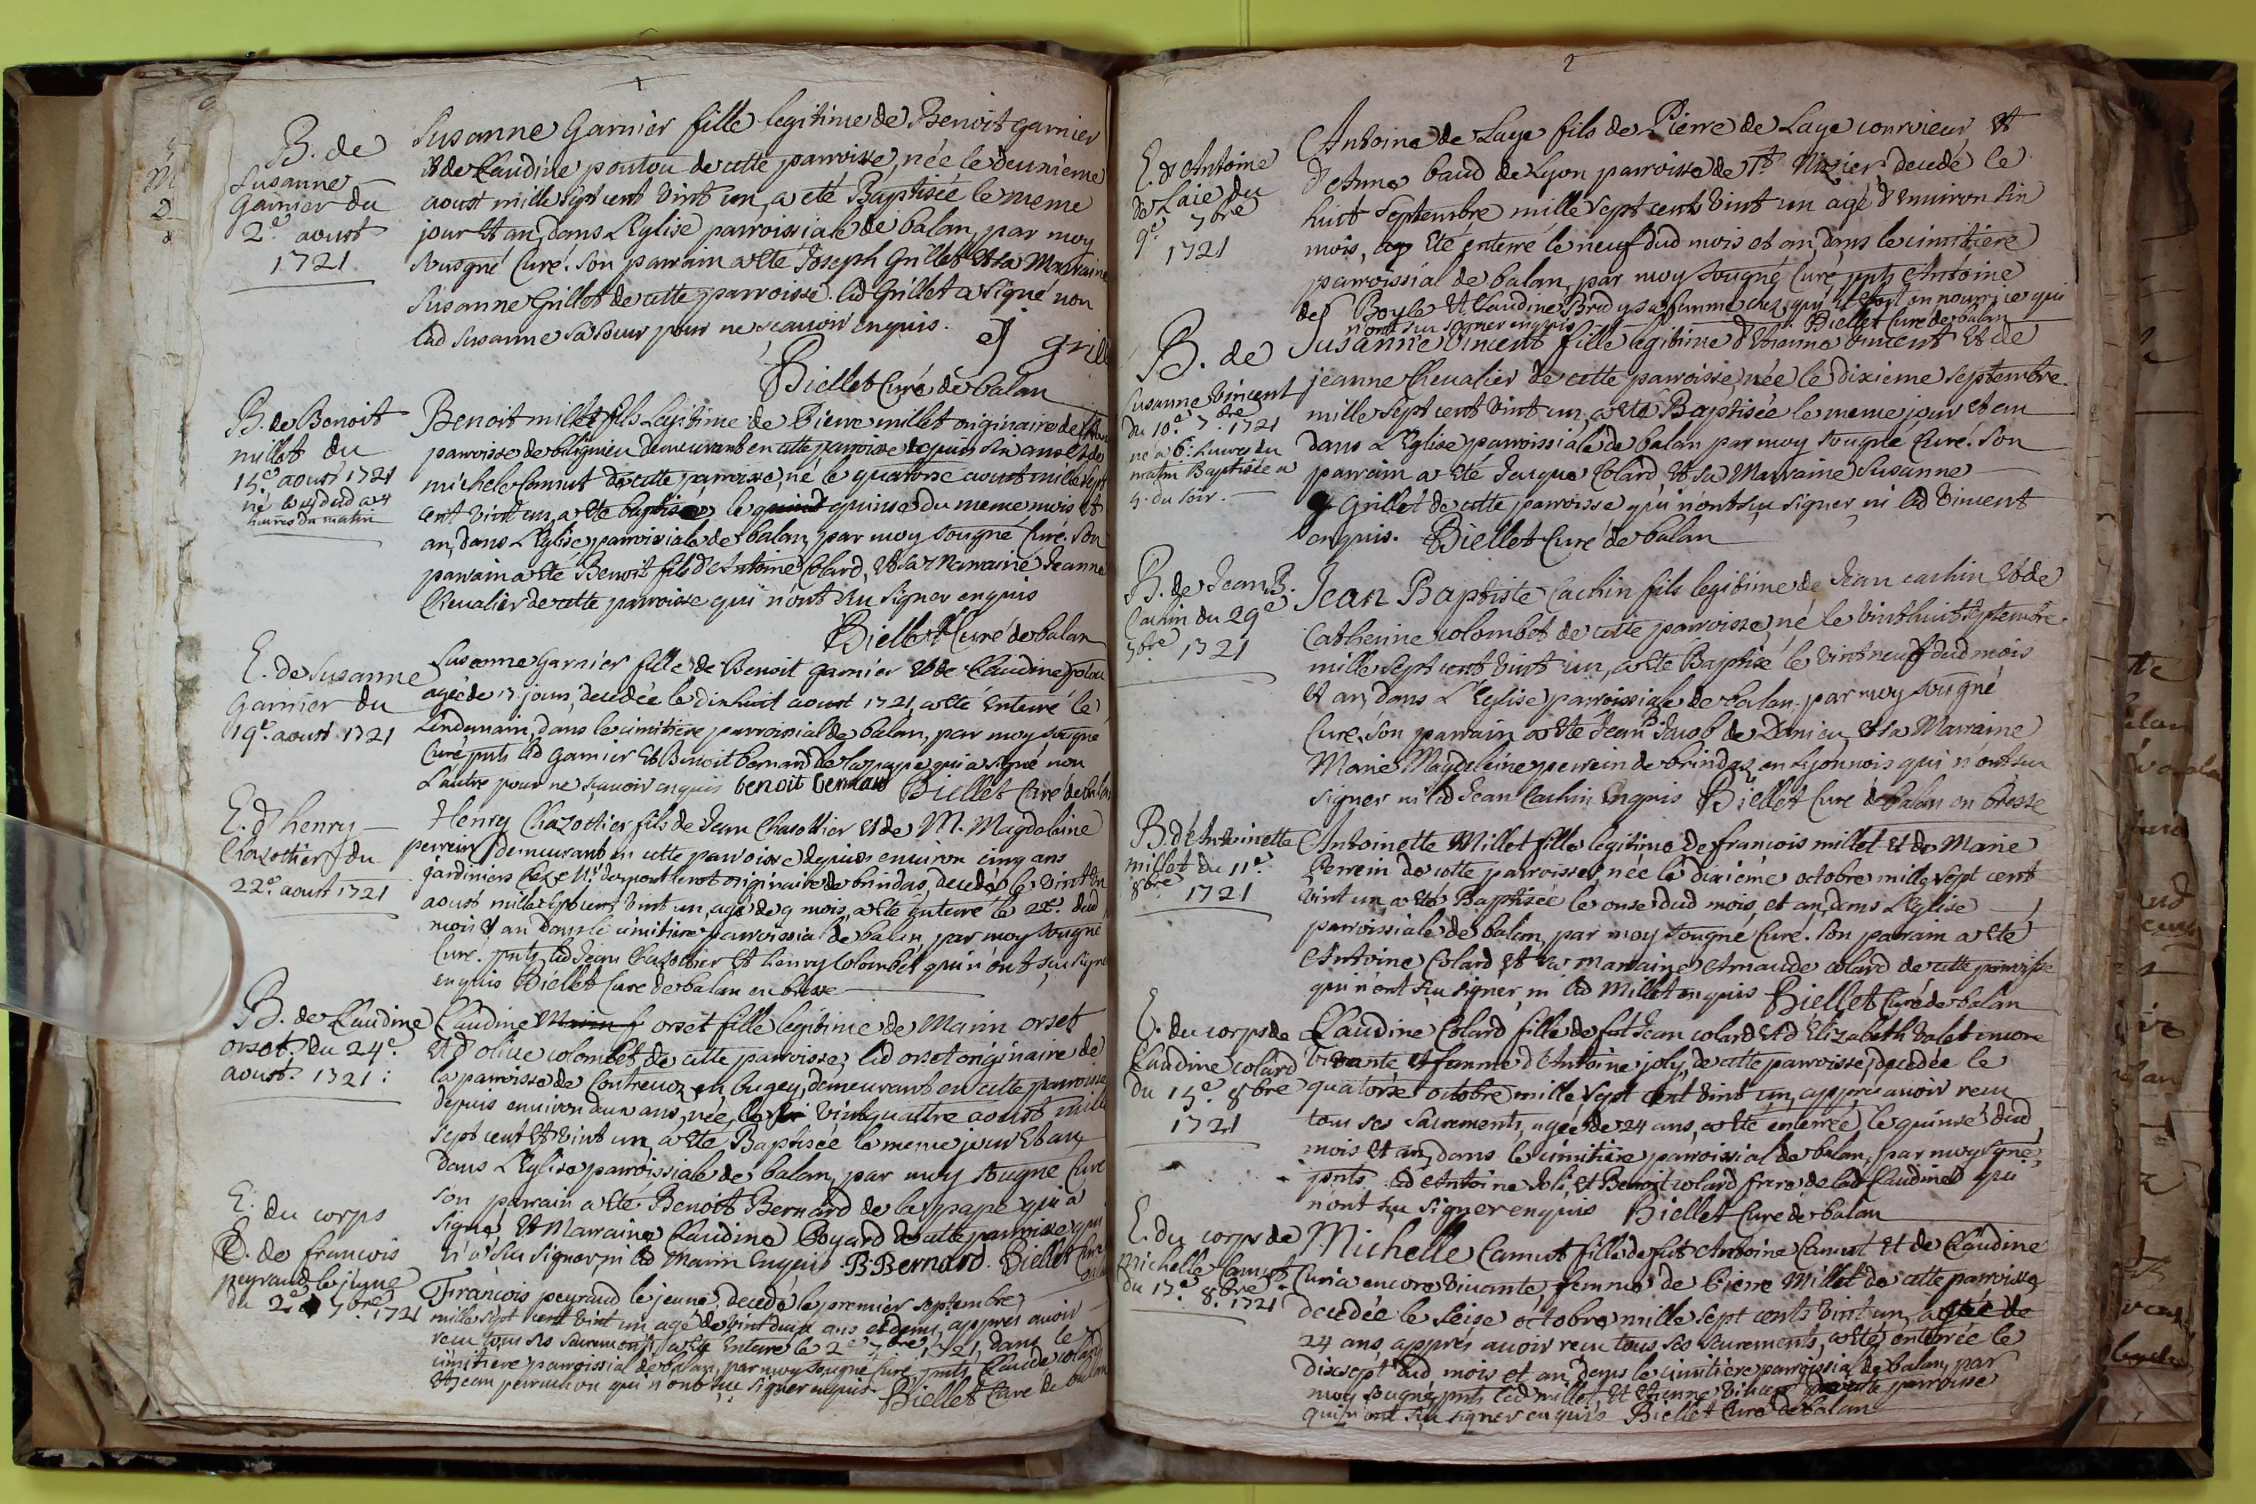 1
B. de
Susanne
Garnier du
2e. aoust
1721
Susanne Garnier fille legitime de Benoit garnier
et de Claudine poulou de cette parroisse, née le deuxieme
aoust mille sept cent vint un, a eté Baptisée le meme
jour et an, dans L'Eglise parroissiale de balan, par moy
sousgné Curé. Son parrain a eté Joseph Grillet et sa Marraine
Susanne Grillet de cette parroisse. led Grillet a signé non
lad Susanne sa soeur pour ne sçauoir enquis.
J grille
Biellet Curé de balan
B. de Benoit
millet du
15e aoust 1721
né le 14 dud a 4
heures du matin
Benoit millet fils Legitime de Pierre millet originaire de
parroisse de blignieu demeurant en cette parroisse depuis six ans et de
michele Camut de cette parroisse, né le quatorse aoust mille sept
cent vint un, a eté baptisé le quinse du meme mois et
an, dans L'Eglise parroissiale de balan, par moy sousgné Curé. Son
parrain a eté Benoit fils d'Antoine Colard, et sa Marraine Jeanne
Cheualier de cette parroisse qui n'ont sçu signer enquis
Biellet Curé de balan
E. de Susanne
Garnier du
19e. aoust 1721
Susanne Garnier fille de Benoit garnier et de Claudine polou
agée de 17 jours, decedée le dixhuit aoust 1721, a eté Enterré le
Lendemain, dans le cimitiere parroissial de balan, par moy sousgné
Curé pnts led Garnier et Benoit bernard de la pape qui a signé non
L'autre pour ne sçauoir enquis benoit bernard Biellet Curé de balan
E. d'henry
Chazottier du
22e. aoust 1721
Henry Chazottier fils de Jean Chasottier et de M. Magdelaine
perrein demeurant en cette parroisse depuis enuiron cinq ans
jardiniers chez Mr. de originaire de brindas, decedé le vint un
aoust mille sept cent vint un, agé de 9 mois, a eté enterré le 22e. dud
mois et an dans le cimitiere parroissial de balan, par moy sousgné
Curé. pnts led Jean Chasottier et henry Colombet qui n'ont sçu signer
enquis Biellet Curé de balan en bresse
B. de Claudine
orset. du 24e.
aoust. 1721:
Claudine orset fille legitime de Marin orset
et d'oliue colombet de cette parroisse, led orset originaire de
la parroisse de Contreuoz en bugey, demeurant en cette parroisse
depuis enuiron deux ans, née, le vint quattre aoust mille
sept cent et vint un, a eté Baptisée le meme jour et an,
dans L'Eglise parroissiale de balan, par moy sousgné Curé
son parrain a eté Benoit Bernard de la pape qui a
signé et Marraine Claudine Poyard de cette parroisse qui
n'a sçu signer, ni led Marin Enquis. B. Bernard. Biellet Curé
E. du corps
de francois
peyraud le jeune
du 2e 7bre 1721
Francois peyraud le jeune, decedé le premier septembre
mille sept cent vint un agé de vint deux ans et demi, appres auoir
receu tous ses sacrements, a eté Enterré le 2e 7bre 1721, dans le
cimitiere parroissial de balan, par moy sousgné Curé, pnts Claude colard
et Jean peirachon qui n'ont sçu signer enquis. Biellet Curé de balan
2
E. d'Antoine
de Laie du
9e 7bre
1721
Antoine de Laye fils de Pierre de Laye et
d'Anne baud de Lyon parroisse de St. Nizier, decedé le
huit septembre mille sept cents vint un agé d'enuiron six
mois, a eté enterré le neuf dud mois et an, dans le cimitiere
parroissial de balan, par moy sousgné Curé pnts Antoine
des Boyle et Claudine sa femme chez qui il etoit en nourrice qui
n'ont sçu signer enquis Biellet Curé de balan
B. de
Susanne Vincent
du 10e 7bre 1721
né a 6 heures du
matin Baptisée a
5. du soir.
Susanne Vincent fille legitime d'Etienne Vincent et de
jeanne Cheualier de cette parroisse, née le dixieme septembre
mille sept cent vint un, a eté Baptisée le meme jour et an
dans L'Eglise parroissiale de balan par moy sousgné Curé. Son
parrain a eté Jacque Colard, et sa Marraine Susanne
Grillet de cette parroisse qui n'ont sçu signer ni led Vincent
enquis. Biellet Curé de balan
B. de Jean B.
Cachin du 29e
7bre 1721
Jean Baptiste Cachin fils legitime de Jean cachin et de
Catherine colombet de cette parroisse, né le vint huit septembre
mille sept cent vint un, a eté Baptisé le vint neuf dud mois
et an, dans L'Eglise parroissiale de balan, par moy sousgné
Curé. Son parrain a eté Jean Jacob de Danieu, et sa Marraine
Marie Magdeleine perrein de brindas en Lyonnois qui n'ont sçu
signer ni led Jean Cachin Enquis Biellet Curé de balan en bresse
B. d'Antoinette
millet du 11e.
8bre 1721
Antoinette Millet fille legitime de francois millet et de Marie
Perrein de cette parroisse, née le dixiéme octobre mille sept cent
vint un, a eté Baptisée le onse dud mois et an, dans L'Eglise
parroissiale de balan, par moy sousgné Curé. Son parrain a eté
Antoine Colard et sa marraine Arnaude colard de cette parroisse
qui n'ont sçu signer, ni led Millet enquis Biellet Curé de balan
E. du corps de
Claudine colard
du 15e. 8bre
1721
Claudine Colard fille de fut Jean colard et d'Elizabeth Valet encore
viuante, et femme d'Antoine joly, de cette parroisse, decedée le
quatorse octobre mille sept cent vint un, apprés auoir receu
tous ses sacrements, agée de 24 ans, a eté enterrée le quinse dud
mois et an, dans le cimitiere parroissial de balan, par moy sgné,
pnts led Antoine Joli, et Benoit colard frere de lad Claudine qui
n'ont sçu signer enquis Biellet Curé de balan
E. du corps de
Michelle Camut
du 17e. 8bre 1721
Michelle Camut fille de fut Antoine Camut et de Claudine
Curia encore viuante, femme de Pierre Millet de cette parroisse
decedée le seise octobre mille sept cents vint un, agée de
24 ans, apprés auoir receu tous ses sacrements, a eté enterrée le
dixsept dud mois et an, dans le cimitiere parroissial de balan, par
moy sousgné, pnts led millet, et Etienne Vincent de cette parroisse
qui n'ont sçu signer enquis Biellet Curé de balan